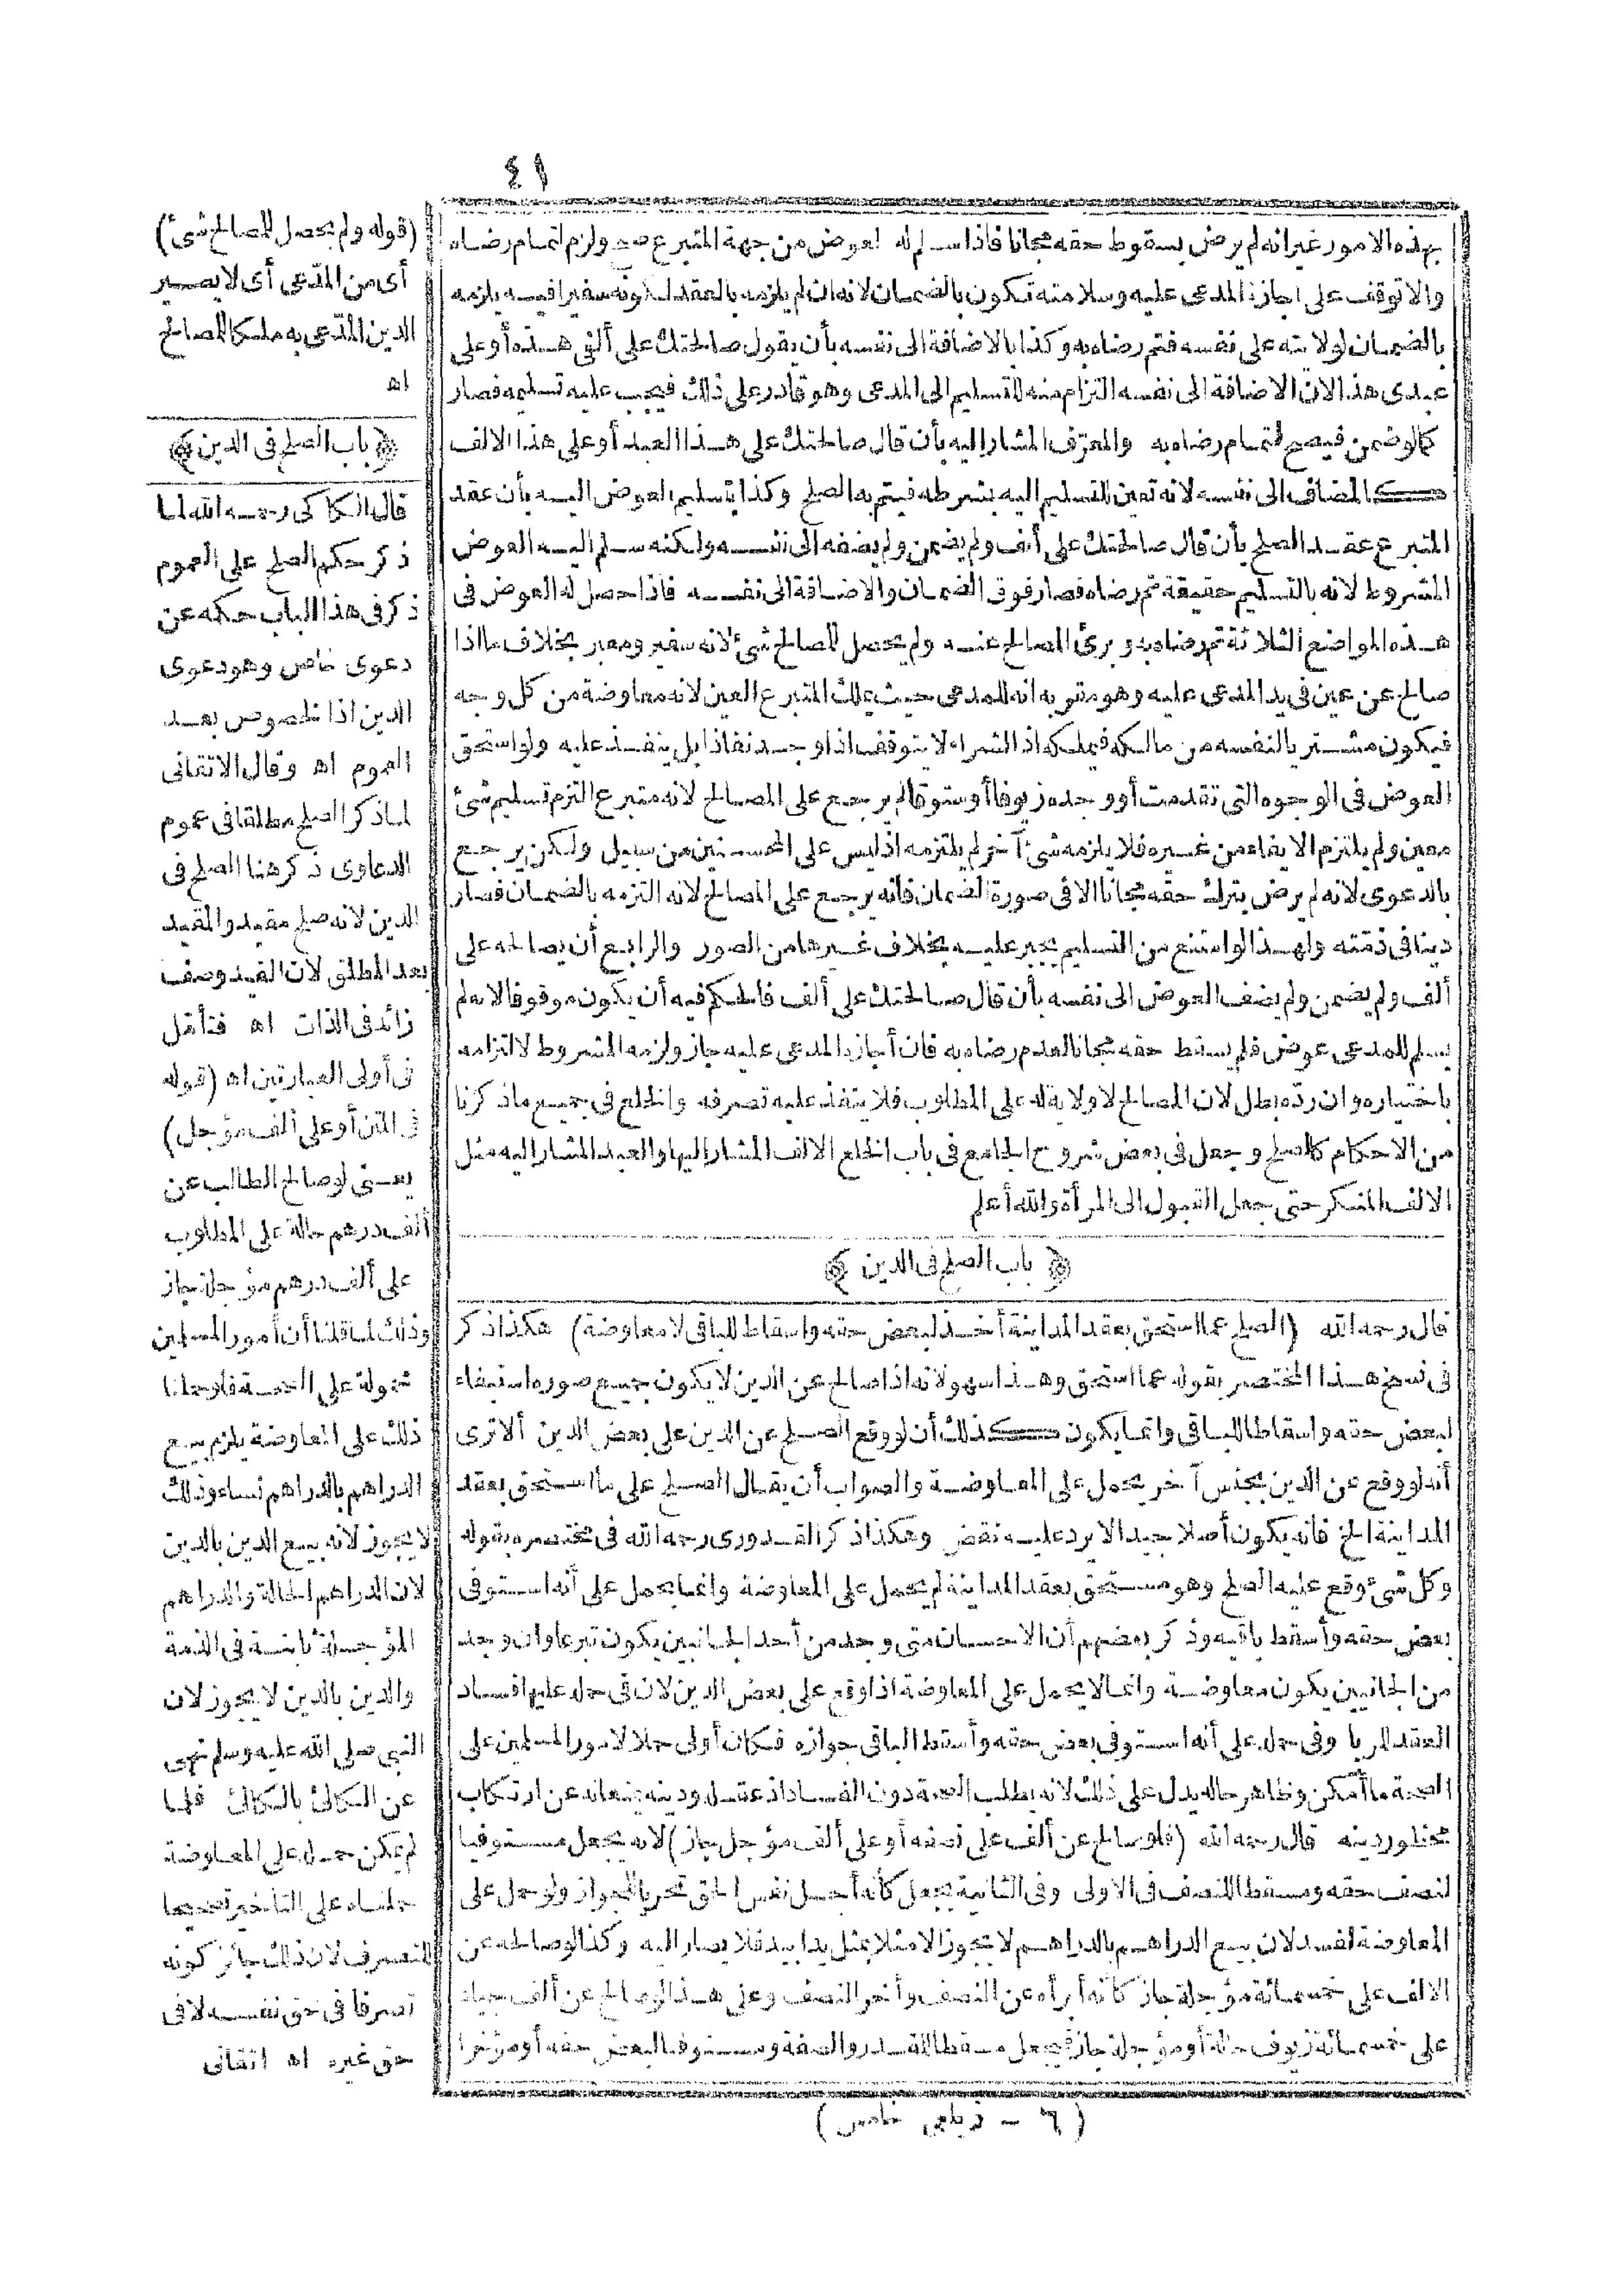 ٤١
بهذه الامور غير انه لم يرض بسقوط حقه مجانا فاذا سلم له العوض من جهة المتبرع صح ولزم لتمام رضاه
والا توقف على اجازة المدعى عليه وسلامته تكون بالضمان لانه ان لم يلزمه بالعقد لكونه سفيرا فيه يلزمه
بالضمان لولايته على نفسه فتم رضاه به وكذا بالاضافة الى نفسه بأن يقول صالحتك على ألفى هذه أو على
عبدى هذا لان الاضافة الى نفسه التزام منه للتسليم الى المدعى وهو قادر على ذلك فيجب عليه تسليمه فصار
كما لو ضمن فيصح لتمام رضاه به والمعرّف المشار اليه بأن قال صالحتك على هذا العبد أو على هذا الالف
كالمضاف الى نفسه لانه تعين للتسليم اليه بشرطه فيتم به الصلح وكذا بتسليم العوض اليه بأن عقد
المتبرع عقد الصلح بأن قال صالحتك على ألف ولم يضمن ولم يضفه الى نفسه ولكنه سلم اليه العوض
المشروط لانه بالتسليم حقيقة تم رضاه فصار فوق الضمان والاضافة الى نفسه فاذا حصل له العوض فى
هذه المواضع الثلاثة تم رضاه به وبرئ المصالح عنه ولم يحصل للمصالح شئ لانه سفير ومعبر بخلاف ما اذا
صالح عن عين فى يد المدعى عليه وهو مقر به انه للمدعى حيث يملك المتبرع العين لانه معاوضة من كل وجه
فيكون مشتريا لنفسه من مالكه فيملكه اذ الشراء لا يتوقف اذا وجد نفاذا بل ينفذ عليه ولو استحق
العوض فى الوجوه التى تقدمت أو وجده زيوفا أو ستوقا لم يرجع على المصالح لانه متبرع التزم تسليم شئ
معين ولم يلتزم الايفاء من غيره فلا يلزمه شئ آخر لم يلتزمه اذ ليس على المحسنين من سبيل ولكن يرجع
بالدعوى لانه لم يرض بترك حقه مجانا الا فى صورة الضمان فانه يرجع على المصالح لانه التزمه بالضمان فصار
دينا فى ذمّته ولهذا لو امتنع من التسليم يجبر عليه بخلاف غيرها من الصور والرابع أن يصالحه على
ألف ولم يضمن ولم يضف العوض الى نفسه بأن قال صالحتك على ألف فالحكم فيه أن يكون موقوفا لانه لم
يسلم للمدعى عوض فلم يسقط حقه مجانا لعدم رضاه به فان أجازه المدعى عليه جاز ولزمه المشروط لالتزامه
باختياره وان ردّه بطل لان المصالح لا ولاية له على المطلوب فلا ينفذ عليه تصرفه والخلع فى جميع ما ذكرنا
من الاحكام كالصلح وجعل فى بعض شروح الجامع فى باب الخلع الالف المشار اليها والعبد المشار اليه مثل
الالف المنكر حتى جعل القبول الى المرأة والله أعلم
﴿ باب الصلح فى الدين ﴾
قال رحمه الله (الصلح عما استحق بعقد المداينة أخذ لبعض حقه واسقاط للباقى لا معاوضة) هكذا ذكر
فى نسخ هذا المختصر بقوله عما استحق وهذا سهو لانه اذا صالح عن الدين لا يكون جميع صوره استيفاء
لبعض حقه واسقاطا للباقى وانما يكون كذلك أن لو وقع الصلح عن الدين على بعض الدين ألا ترى
أنه لو وقع عن الدين بجنس آخر يحمل على المعاوضة والصواب أن يقال الصلح على ما استحق بعقد
المداينة الخ فانه يكون أصلا جيدا لا يرد عليه نقض وهكذا ذكر القدورى رحمه الله فى مختصره بقوله
وكل شئ وقع عليه الصلح وهو مستحق بعقد المداينة لم يحمل على المعاوضة وانما يحمل على أنه استوفى
بعض حقه وأسقط باقيه وذكر بعضهم أن الاحسان متى وجد من أحد الجانبين يكون تبرعا وان وجد
من الجانبين يكون معاوضة وانما لا يحمل على المعاوضة اذا وقع على بعض الدين لان فى حمله عليها فساد
العقد للربا وفى حمله على أنه استوفى بعض حقه وأسقط الباقى جوازه فكان أولى حملا لامور المسلمين على
الصحة ما أمكن وظاهر حاله يدل على ذلك لانه يطلب الصحة دون الفساد اذ عقله ودينه يمنعانه عن ارتكاب
محظور دينه قال رحمه الله (فلو صالح عن ألف على نصفه أو على ألف مؤجل جاز) لانه يجعل مستوفيا
لنصف حقه ومسقطا للنصف فى الاولى وفى الثانية يجعل كأنه أجل نفس الحق تحريا للجواز ولو حمل على
المعاوضة لفسد لان بيع الدراهم بالدراهم لا يجوز الا مثلا بمثل يدا بيد فلا يصار اليه وكذا لو صالحه عن
الالف على خمسمائة مؤجلة جاز كأنه أبرأه عن النصف وأخر النصف وعلى هذا لو صالح عن ألف جياد
على خمسمائة زيوف حالة أو مؤجلة جاز فيجعل مسقطا للقدر والصفة ومستوفيا لبعض حقه أو مؤخرا
(قوله ولم يحصل للمصالح شئ)
أى من المدّعى أى لا يصير
الدين المدّعى به ملكا للمصالح
اه
﴿باب الصلح فى الدين﴾
قال الكاكى رحمه الله لما
ذكر حكم الصلح على العموم
ذكر فى هذا الباب حكمه عن
دعوى خاص وهو دعوى
الدين اذ الخصوص بعد
العموم اه وقال الاتقانى
لما ذكر الصلح مطلقا فى عموم
الدعاوى ذكر هنا الصلح فى
الدين لانه صلح مقيد والمقيد
بعد المطلق لان القيد وصف
زائد فى الذات اه فتأمل
فى أولى العبارتين اه (قوله
فى المتن أو على ألف مؤجل)
يعنى لو صالح الطالب عن
ألف درهم حالة على المطلوب
على ألف درهم مؤجلة جاز
وذلك لما قلنا أن أمور المسلمين
محمولة على الصحة فلو حملنا
ذلك على المعاوضة يلزم بيع
الدراهم بالدراهم نساء وذلك
لا يجوز لانه بيع الدين بالدين
لان الدراهم الحالة والدراهم
المؤجلة ثابتة فى الذمة
والدين بالدين لا يجوز لان
النبى صلى الله عليه وسلم نهى
عن الكالئ بالكالئ فلما
لم يمكن حمله على المعاوضة
حملناه على التأخير تصحيحا
للتصرف لان ذلك جائز كونه
تصرفا فى حق نفسه لا فى
حق غيره اه اتقانى
(٦ - زيلعى خامس)